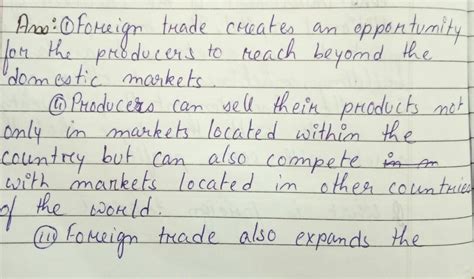 Ans: (i) Foreign trade creates an opportunity
for the producers to reach beyond the
domestic markets.
(ii) Producers can sell their products not
only in markets located within the
country but can also compete
with markets located in other countries
of the world.
(iii) Foreign trade also expands the